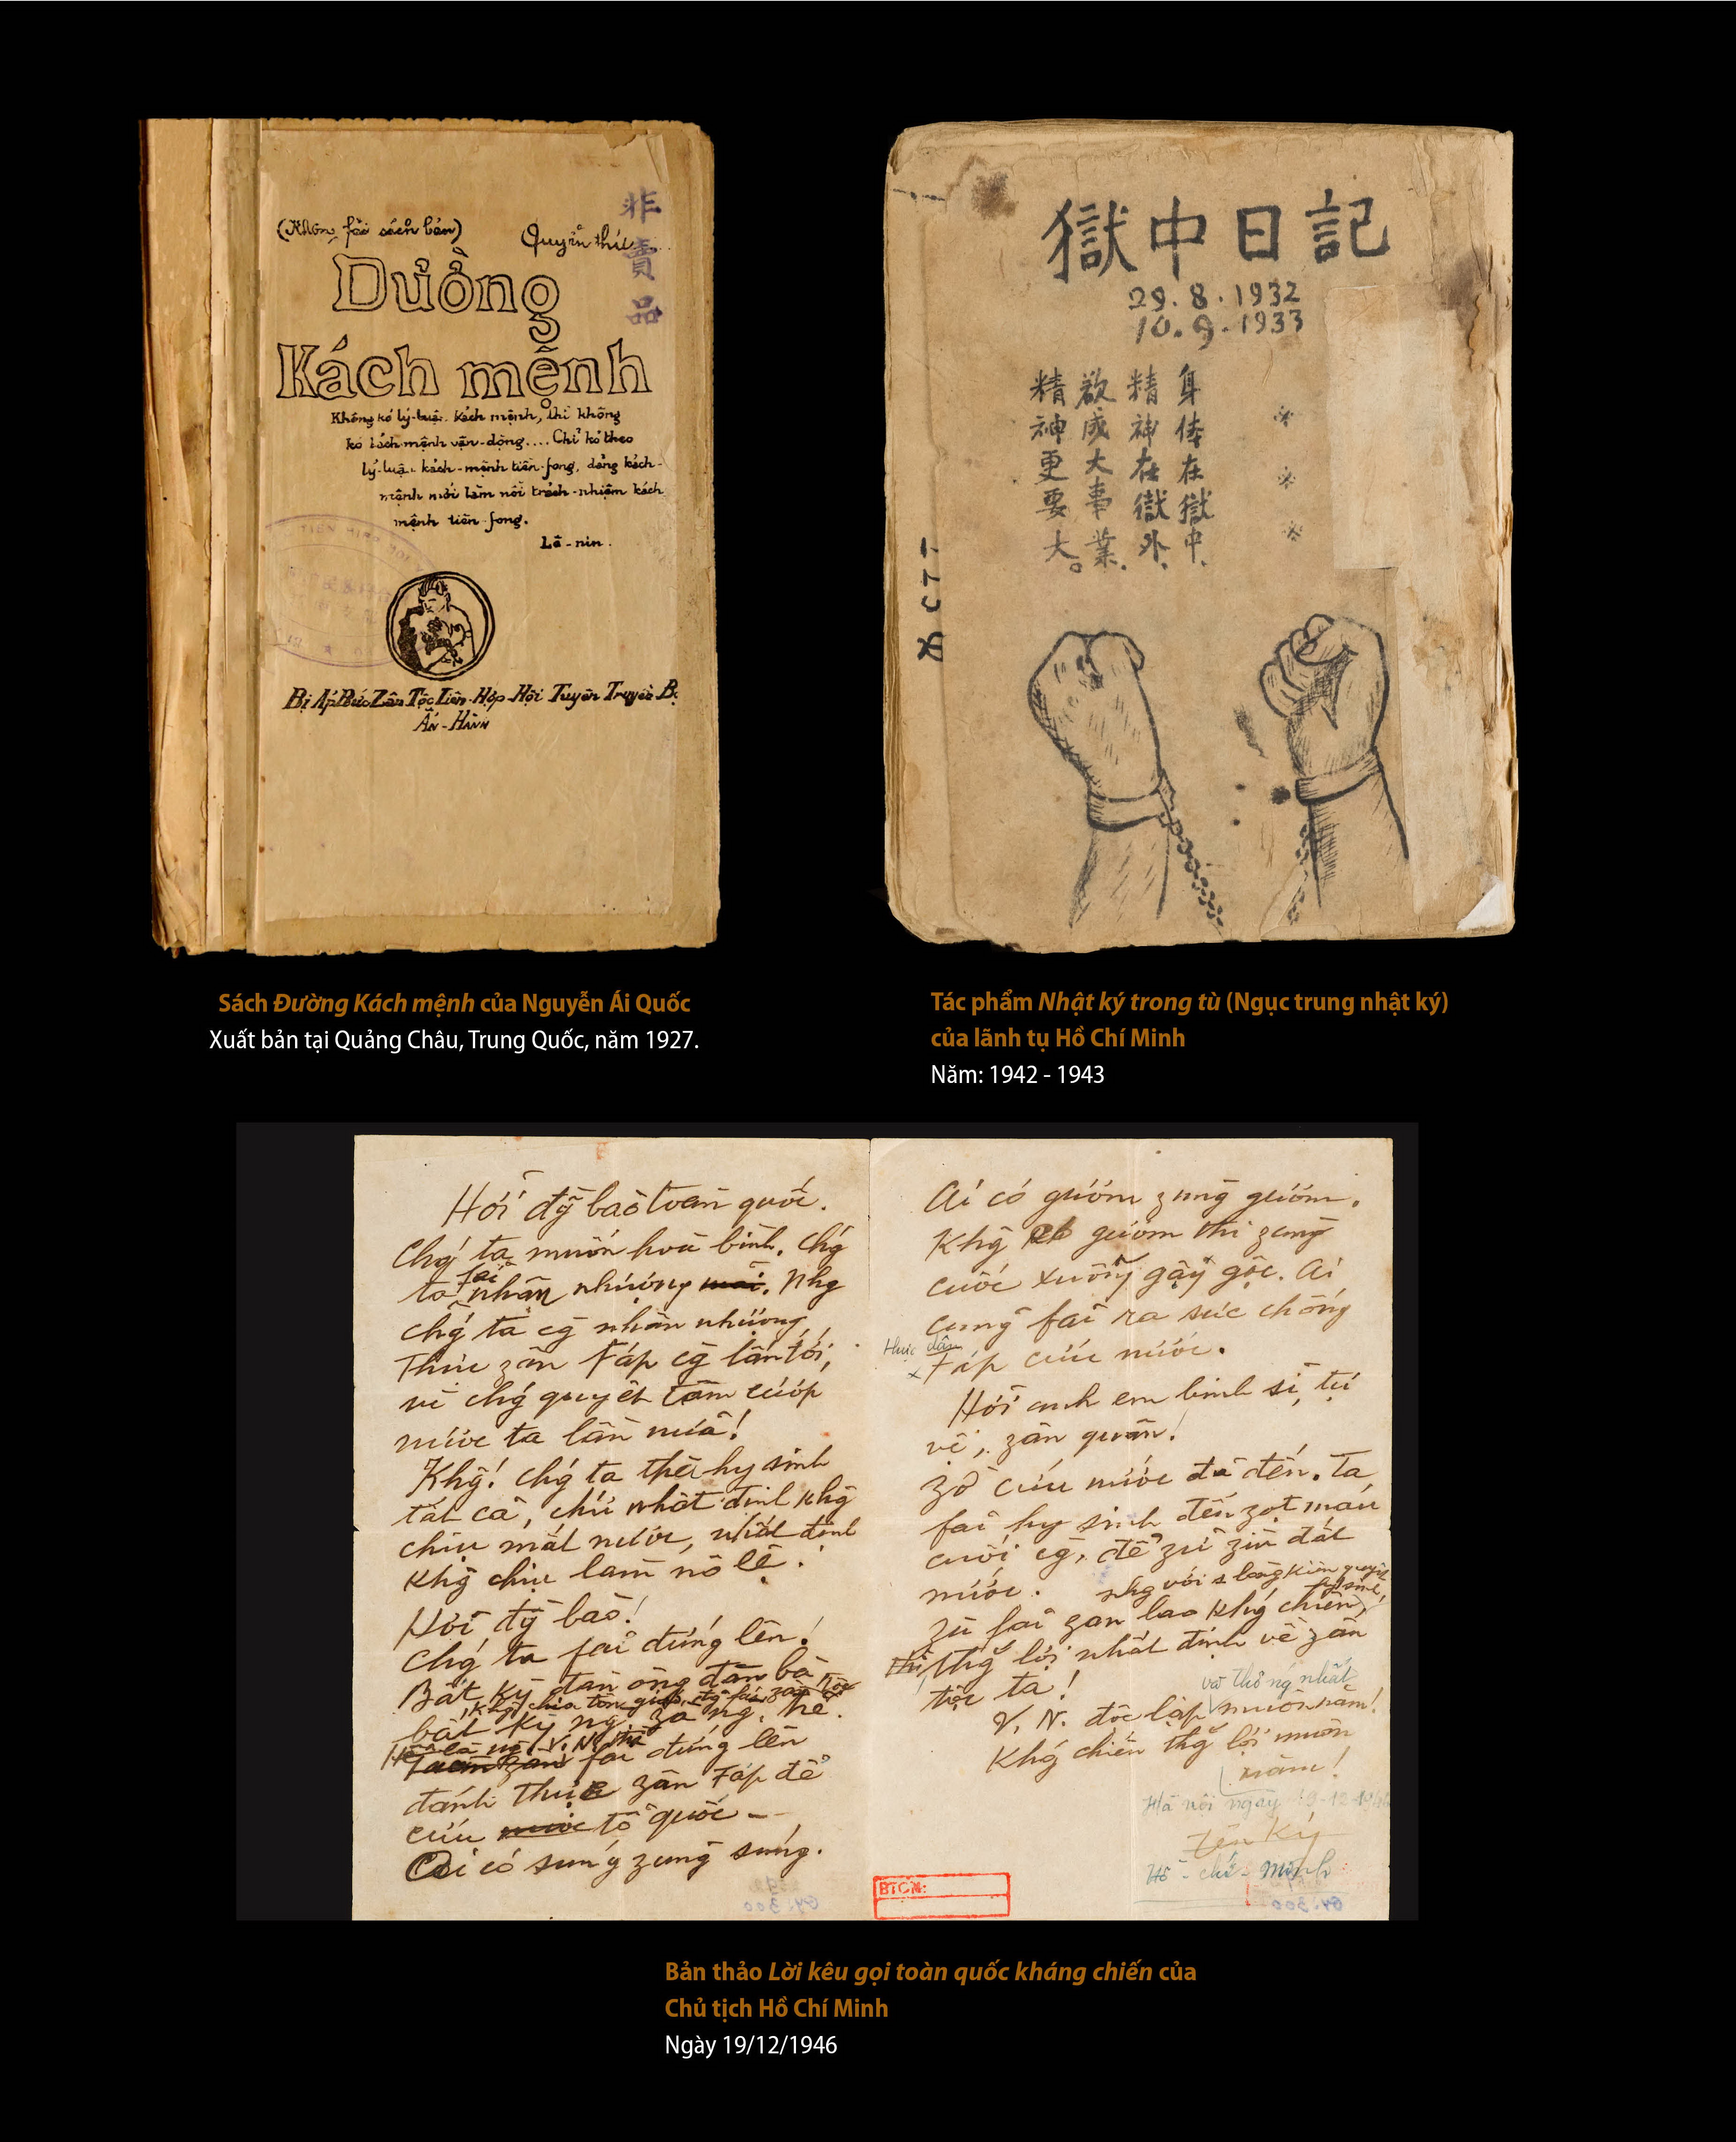 (Không fải sách bán)
Quyển thứ
非
賣
品
Đường
Kách mệnh
Không kó lý-luận kách mệnh, thì không
kó kách mệnh vận-động.... Chỉ kó theo
lý-luận kách-mệnh tiền-fong, đảng kách-
mệnh mới làm nổi trách-nhiệm kách
mệnh tiền-fong.
Lê-nin.
Bị Áp Bức Zân Tộc Liên-Hợp-Hội Tuyên Truyền Bộ
Ấn-Hành
Sách Đường Kách mệnh của Nguyễn Ái Quốc
Xuất bản tại Quảng Châu, Trung Quốc, năm 1927.
獄中日記
29.8.1932
10.9.1933
身体在獄中.
精神在獄外.
欲成大事業.
精神更要大。
Tác phẩm Nhật ký trong tù (Ngục trung nhật ký)
của lãnh tụ Hồ Chí Minh
Năm: 1942 - 1943
Hỡi đỹ bào toàn quốc.
Chg' ta muốn hoà bình. Chg'
ta fải nhân nhượng mãi. Nhg
chg' ta cg̃ nhân nhượng,
Thực zân Fáp cg̃ lấn tới,
vì chg' quyết tâm cướp
nước ta lần nữa!
Khg! Chg' ta thà hy sinh
tất cả, chứ nhất định khg
chịu mất nước, nhất định
khg chịu làm nô lệ.
Hỡi đg̀ bào!
Chg' ta fải đứng lên!
Bất kỳ đàn ông đàn bà
bất kỳ ng. za ng. trẻ.
fải đứng lên
đánh thực zân Fáp để
cứu nước tổ quốc -
Ai có súng zùng súng.
Ai có gươm zùng gươm.
Khg có gươm thì zùng
cuốc xuổng gậy gộc. Ai
cũng fải ra sức chống
thực dân
Fáp cứu nước.
Hỡi anh em binh sĩ, tự
vệ, zân quân!
Zờ cứu nước đã đến. Ta
fải hy sinh đến zọt máu
cuối cg̀, để zữ zìn đất
nước.
Zù fải zan lao khg' chiến,
nhg với 1 lòng kiên quyết
hy sinh,
thì thg' lợi nhất định về zân
tộc ta!
và thống nhất
V. N. độc lập muôn năm!
Khg' chiến thg' lợi muôn
năm!
Hà nội ngày 19-12-1946
tên Ký
Hồ-chí-Minh
BTCM:
Bản thảo Lời kêu gọi toàn quốc kháng chiến của
Chủ tịch Hồ Chí Minh
Ngày 19/12/1946